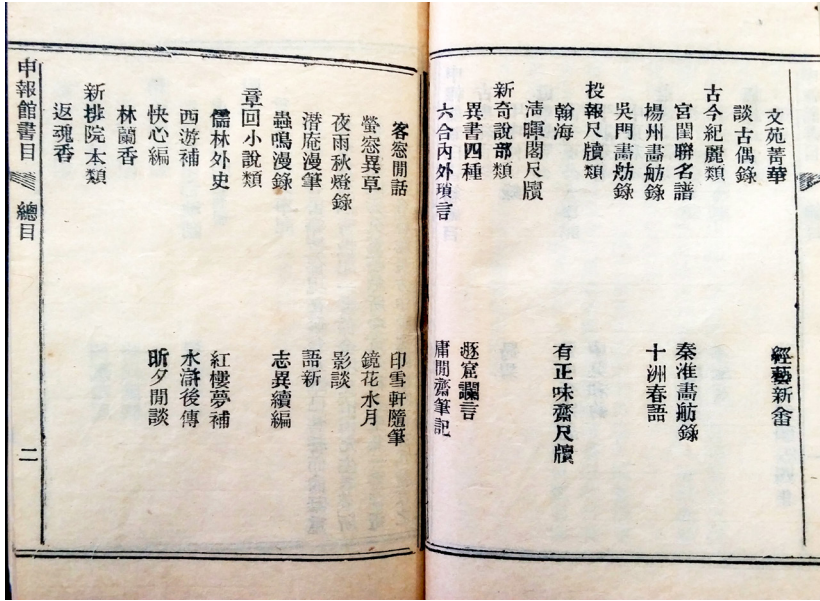 文苑菁華　經藝新畬
談古偶錄
古今紀麗類
宮閨聯名譜　秦淮畵舫錄
揚州畵舫錄　十洲春語
吳門畵舫錄
投報尺牘類
翰海　有正味齋尺牘
淸暉閣尺牘
新奇說部類
異書四種　遯窟讕言
六合內外瑣言　庸閒齋筆記
客窓閒話　印雪軒隨筆
螢窓異草　鏡花水月
夜雨秋燈錄　影談
潜庵漫筆　語新
蟲鳴漫錄　志異續編
章回小說類
儒林外史　紅樓夢補
西游補　水滸後傳
快心編　昕夕閒談
林蘭香
新排院本類
返魂香
申報館書目　總目　二